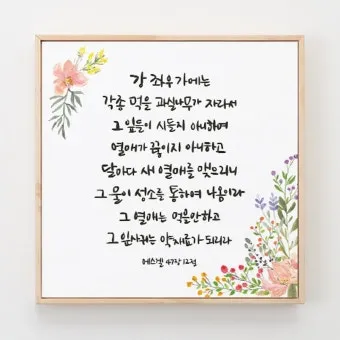 강 좌우 가에는
각종 먹을 과실나무가 자라서
그 잎들이 시들지 아니하며
열매가 끊이지 아니하고
달마다 새 열매를 맺으리니
그 물이 성소를 통하여 나옴이라
그 열매는 먹을만하고
그 잎사귀는 약재료가 되리라
에스겔 47장 12절